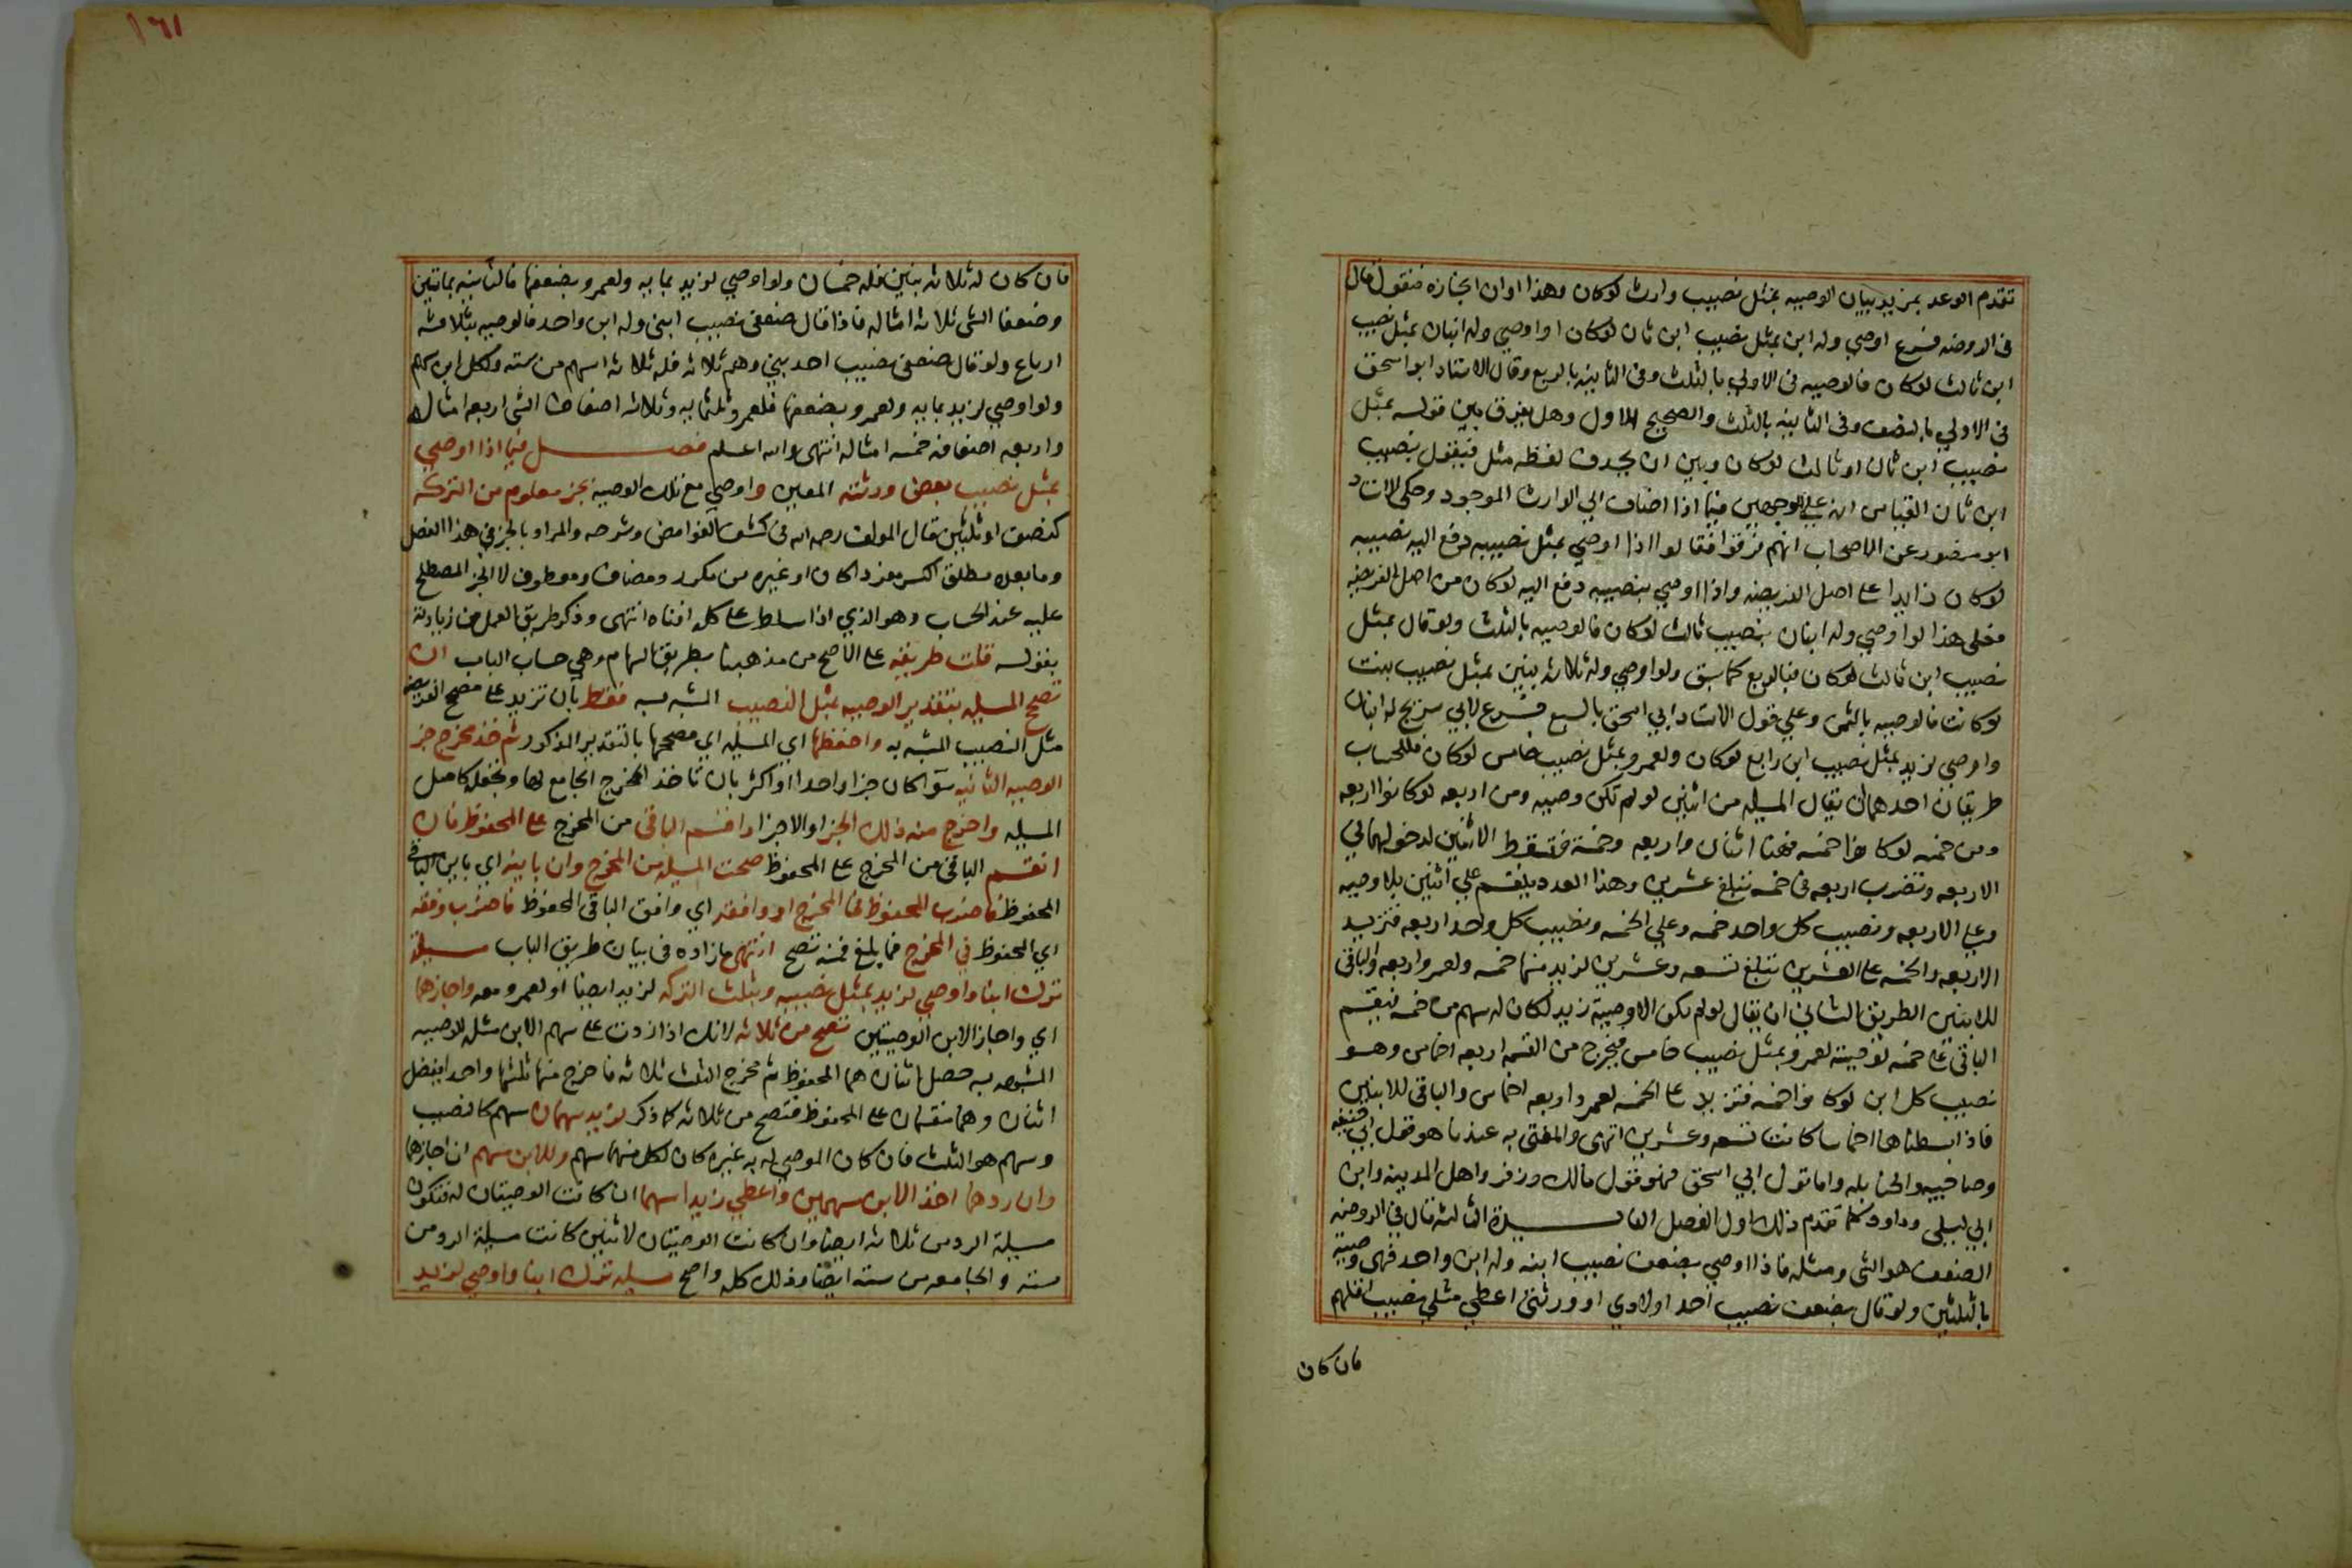 تقدم الوعد بمزيد بيان الوصيه بمثل نصيب وارث لوكان وهذا اوان انجازه فنقول قال
فى الروضه فرع اوصي وله ابن بمثل نصيب ابن ثان لوكان او اوصي وله ابنان بمثل نصيب
ابن ثالث لوكان فالوصيه فى الاولي بالثلث وفى الثانيه بالربع وقال الاستاد ابو اسحق
فى الاولي بالنصف وفى الثانيه بالثلث والصحيح الاول وهل يفرق بين قوله بمثل
نصيب ابن ثان او ثالث لوكان وبين ان يحذف لفظه مثل فيقول بنصيب
ابن ثان القياس انه علي الوجهين فيما اذا اضاف الي الوارث الموجود وحكى الاستاد
ابو منصور عن الاصحاب انهم فرقوا فقالوا اذا اوصي بمثل نصيبه دفع اليه نصيبه
لوكان زايدا على اصل الفريضه واذا اوصي بنصيبه دفع اليه لوكان من اصل الفريضه
فعلى هذا لو اوصي وله ابنان بنصيب ثالث لوكان فالوصيه بالثلث ولو قال بمثل
نصيب ابن ثالث لوكان فبالربع كما سبق ولو اوصي وله ثلاثه بنين بمثل نصيب بنت
لوكانت فالوصيه بالثمن وعلي قول الاستاد ابي اسحق بالسبع فرع لابي سريج له ابنان
واوصي لزيد بمثل نصيب ابن رابع لوكان ولعمرو بمثل نصيب خامس لوكان فللحساب
طريقان احدهما ان يقال المسيله من اثنين لو لم تكن وصيه ومن اربعه لوكانوا اربعه
ومن خمسه لوكانوا خمسه فهنا اثنان واربعه وخمسة فتسقط الاثنين لدخولهما في
الاربعه وتضرب اربعه فى خمسه تبلغ عشرين وهذا العدد ينقسم علي اثنين بلا وصيه
وعلي الاربعه ونصيب كل واحد خمسه وعلي الخمسه ونصيب كل واحد اربعه فتزيد
الاربعه والخمسه على العشرين تبلغ تسعه وعشرين لزيد منها خمسه ولعمرو اربعه والباقى
للابنين الطريق الثاني ان يقال لو لم يكن الا وصية زيد لكان له سهم من خمسه فيقسم
الباقى على خمسه لوصيته لعمرو بمثل نصيب خامس فيخرج من القسمه اربعه اخماس وهو
نصيب كل ابن لوكانوا خمسه فتزيد على الخمسه لعمرو اربعه اخماس والباقى للابنين
فاذا بسطناها اخماسا كانت تسعه وعشرين انتهى والمفتى به عندنا هو قول ابي حنيفه
وصاحبيه والحنابله واما قول ابي اسحق فهو قول مالك وزفر واهل المدينه وابن
ابي ليلى وداود كما تقدم ذلك اول الفصل الفايدة الثالثه قال فى الروضه
الضعف هو الشى ومثله فاذا اوصي بضعف نصيب ابنه وله ابن واحد فهى وصيه
بالثلثين ولو قال بضعف نصيب احد اولادي او ورثتى اعطي مثلي نصيب اقلهم
فان كان
١٦١
فان كان له ثلاثه بنين فله خمسان ولو اوصي لزيد بمايه ولعمرو بضعفها فالثانيه بمايتين
وضعفا الشى ثلاثه امثاله فاذا قال ضعفى نصيب ابنى وله ابن واحد فالوصيه بثلاثه
ارباع ولو قال ضعفى نصيب احد بني وهم ثلاثه فله ثلاثه اسهم من سته ولكل ابن سهم
ولو اوصي لزيد بمايه ولعمرو بضعفيها فلعمرو ثلثمايه وثلاثه اضعاف الشى اربعه امثاله
واربعه اضعافه خمسه امثاله انتهى والله اعلم فصل فيما اذا اوصي
بمثل نصيب بعض ورثته المعين واوصي مع تلك الوصيه بجزء معلوم من التركه
كنصف او ثلثين قال المولف رحمه الله فى كشف الغوامض وشرحه والمراد بالجزء فى هذا الفصل
وما بعده مطلق الكسر مفردا كان او غيره من مكرر ومضاف ومعطوف لا الجزء المصطلح
عليه عند الحساب وهو الذي اذا سلط على كله افناه انتهى وذكر طريق العمل من زيادته
بقوله قلت طريقه على الاصح من مذهبنا بطريق السهام وهي حساب الباب ان
تصحح المسيله بتقدير الوصيه بمثل النصيب المشبه به فقط بان تزيد على مصحح الفريضه
مثل النصيب المشبه به واحفظها اي المسيله اي مصححها بالتقدير المذكور ثم خذ مخرج جزء
الوصيه الثانيه سوآ كان جزا واحدا او اكثر بان تاخذ المخرج الجامع لها وتجعله كاصل
المسيله واخرج منه ذلك الجزء او الاجزا واقسم الباقى من المخرج على المحفوظ فان
انقسم الباقى من المخرج على المحفوظ صحت المسيله من المخرج وان باينه اي باين الباقى
المحفوظ فاضرب المحفوظ فى المخرج او وافقه اي وافق الباقى المحفوظ فاضرب وفقه
اي المحفوظ في المخرج فما يبلغ فمنه تصح انتهى ما زاده فى بيان طريق الباب مسيلة
ترك ابنا واوصي لزيد بمثل نصيبه وبثلث التركه لزيد ايضا او لعمرو معه واجازهما
اي واجاز الابن الوصيتين تصح من ثلاثه لانك اذا زدت على سهم الابن مثله للوصيه
المشبه به حصل اثنان هما المحفوظ ثم مخرج الثلث ثلاثه فاخرج منها ثلثها واحدا يفضل
اثنان وهما منقسمان على المحفوظ فتصح من ثلاثه كما ذكر لزيد سهمان سهم كالنصيب
وسهم هو الثلث فان كان الموصي له به غيره كان لكل منهما سهم وللابن سهم ان اجازهما
وان ردهما اخذ الابن سهمين واعطي زيدا سهما ان كانت الوصيتان له فتكون
مسيلة الرد من ثلاثه ايضا وان كانت الوصيتان لاثنين كانت مسيلة الرد من
سته والجامعه من سته ايضا وذلك كله واضح مسيله ترك ابنا واوصي لزيد